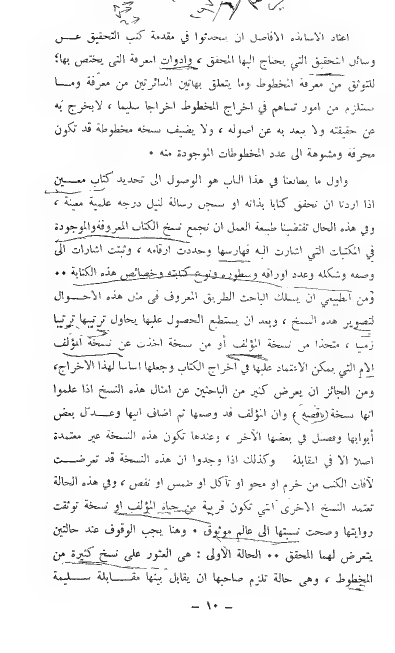 اعتاد الاساتذه الافاضل ان يتحدثوا في مقدمة كتب التحقيق عــن
وسائل التحقيق التي يحتاج اليها المحقق ، وادوات المعرفة التى يختص بها؛
للتوثق من معرفة المخطوط وما يتعلق بهاتين الدائرتين من معرفة ومــا
يستلزم من امور تساهم في اخراج المخطوط اخراجا سليما ، لايخرج به
عن حقيقته ولا يبعد به عن اصوله ، ولا يضيف نسخه مخطوطة قد تكون
محرفه ومشوهة الى عدد المخطوطات الموجودة منه ٠
واول ما يطالعنا في هذا الباب هو الوصول الى تحديد كتاب معــين
اذا اردنا ان نحقق كتابا بذاته او نسجل رسالة لنيل درجه علمية معينة ،
وفي هذه الحال تقتضينا طبيعة العمل ان نجمع نسخ الكتاب المعروفة والموجودة
في المكتبات التي اشارت اليه فهارسها وحددت ارقامه ، وثبتت اشارات الى
وصفه وشكله وعدد اوراقه وسطوره ونوع كتابته وخصائص هذه الكتابة ٠٠
ومن الطبيعي ان يسلك الباحث الطريق المعروف في مثل هذه الاحــوال
لتصوير هذه النسخ ، وبعد ان يستطيع الحصول عليها يحاول ترتيبها ترتيبا
زمنيا ، متخذا من نسخة المؤلف أو من نسخة اخذت عن نسخة المؤلف
الام التي يمكن الاعتماد عليها في اخراج الكتاب وجعلها اساسا لهذا الاخراج،
ومن الجائز ان يعرض كثير من الباحثين عن امثال هذه النسخ اذا علموا
انها نسخة (ناقصة) وان المؤلف قد وسعها ثم اضاف اليها وعــدل بعض
أبوابها وفصل في بعضها الآخر ، وعندها تكون هذه النسخة غير معتمدة
اصلا الا في المقابلة وكذلك اذا وجدوا ان هذه النسخة قد تعرضــت
لآفات الكتب من خرم او محو او تآكل او طمس او نقص ، وفي هذه الحالة
تعتمد النسخ الاخرى التي تكون قريبة من حياه المؤلف او نسخة توثقت
روايتها وصحت نسبتها الى عالم موثوق ٠ وهنا يجب الوقوف عند حالتين
يتعرض لهما المحقق ٠٠ الحالة الأولى : هى العثور على نسخ كثيرة من
المخطوط ، وهى حالة تلزم صاحبها ان يقابل بينها مقــابلة سليــمة
— ١٠ —